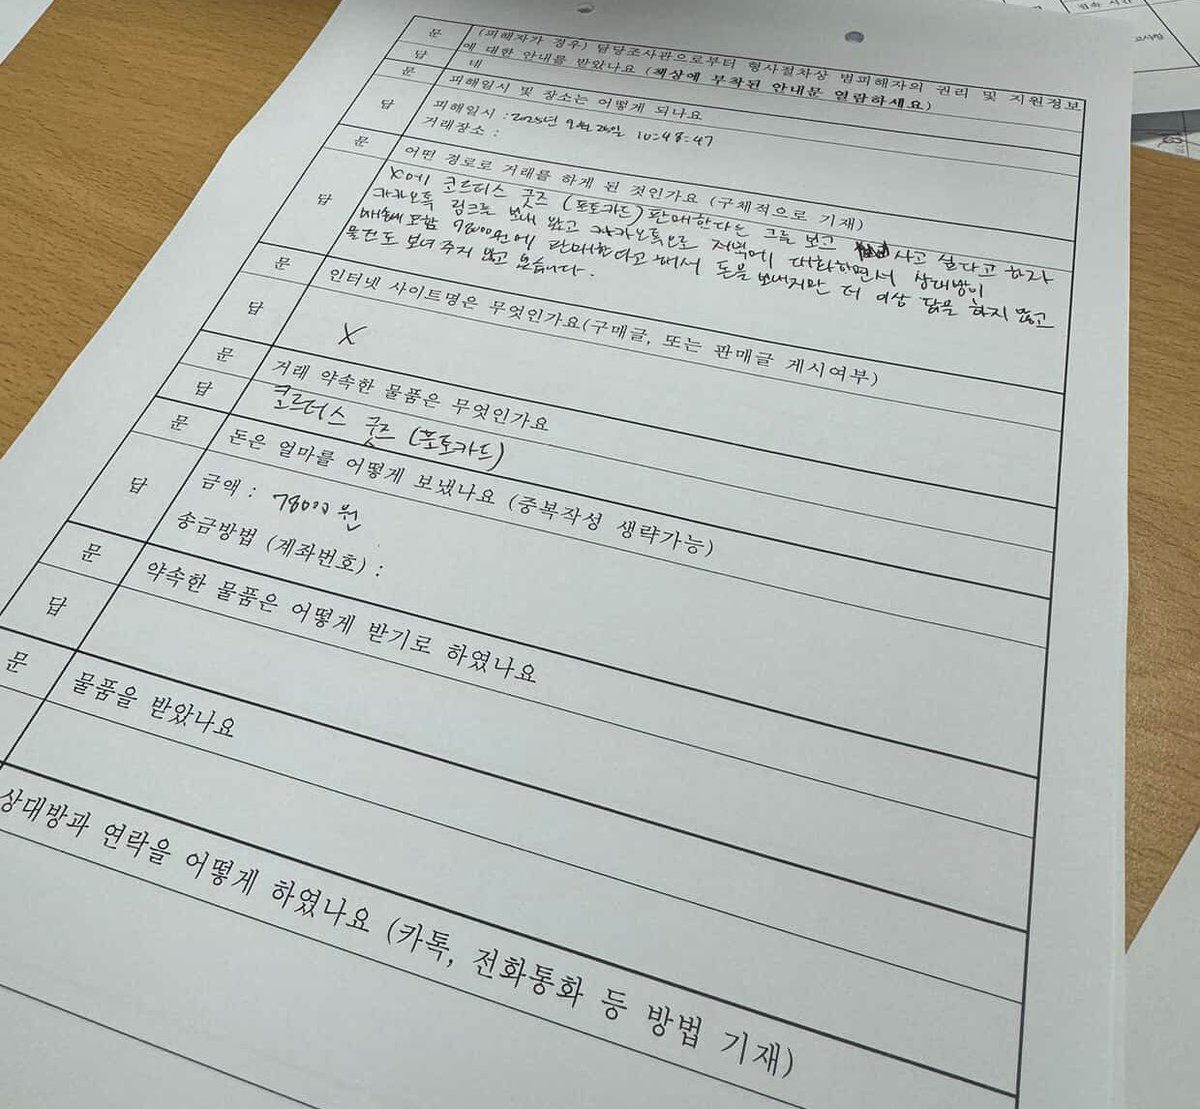 문 (피해자가 경우) 담당조사관으로부터 형사절차상 범피해자의 권리 및 지원정보
에 대한 안내를 받았나요 (책상에 부착된 안내문 열람하세요)
답 네
문 피해일시 및 장소는 어떻게 되나요
답 피해일시 : 2025년 9월 25일 10:48:47
거래장소 :
문 어떤 경로로 거래를 하게 된 것인가요 (구체적으로 기재)
답 X에 코르티스 굿즈 (포토카드) 판매한다는 글을 보고 사고 싶다고 하자
카카오톡 링크를 보내 왔고 카카오톡으로 저녁에 대화하면서 상대방이
포함 78000원에 판매한다고 해서 돈을 보내지만 더 이상 답을 하지 않고
물건도 보내주지 않고 있습니다.
문 인터넷 사이트명은 무엇인가요(구매글, 또는 판매글 게시여부)
답 X
문 거래 약속한 물품은 무엇인가요
답 코르티스 굿즈 (포토카드)
문 돈은 얼마를 어떻게 보냈나요 (중복작성 생략가능)
답 금액 : 78000원
송금방법 (계좌번호) :
문 약속한 물품은 어떻게 받기로 하였나요
답
문 물품을 받았나요
상대방과 연락을 어떻게 하였나요 (카톡, 전화통화 등 방법 기재)